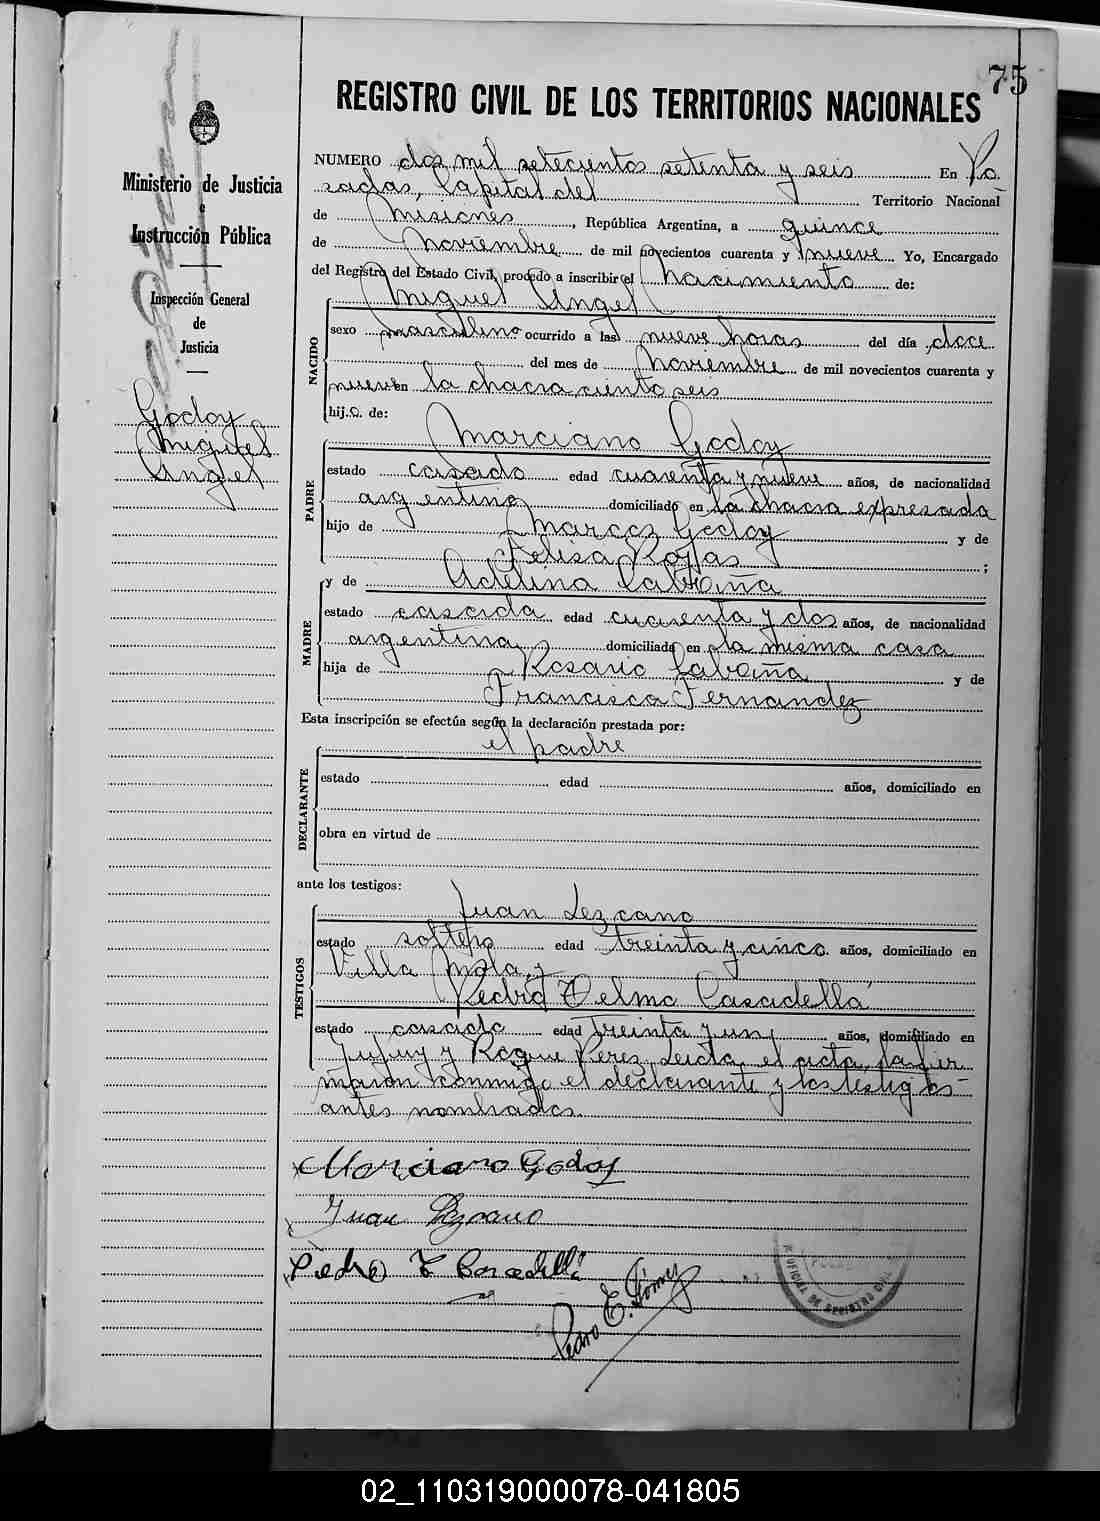 75
REGISTRO CIVIL DE LOS TERRITORIOS NACIONALES
Ministerio de Justicia
e
Instrucción Pública
Inspección General
de
Justicia
Godoy
Miguel
Angel
NUMERO dos mil setecientos setenta y seis En Po
sadas, Capital del Territorio Nacional
de Misiones, República Argentina, a quince
de Noviembre de mil novecientos cuarenta y nueve Yo, Encargado
del Registro del Estado Civil, procedo a inscribir el Nacimiento de:
NACIDO
Miguel Angel
sexo masculino ocurrido a las nueve horas del día doce
del mes de Noviembre de mil novecientos cuarenta y
nueve en la chacra ciento seis
hijo de:
PADRE
Marciano Godoy
estado casado edad cuarenta y nueve años, de nacionalidad
argentino domiciliado en la chacra expresada
hijo de Marcos Godoy y de
Felisa Rojas ;
MADRE
y de Adelina Cabaña
estado casada edad cuarenta y dos años, de nacionalidad
argentina domiciliada en la misma casa
hija de Rosario Cabaña y de
Francisca Fernandez
Esta inscripción se efectúa según la declaración prestada por:
DECLARANTE
el padre
estado edad años, domiciliado en
obra en virtud de
ante los testigos:
TESTIGOS
Juan Lezcano
estado soltero edad treinta y cinco años, domiciliado en
Villa Mola, y
Pedro Telmo Casadella
estado casado edad treinta y un años, domiciliado en
Jujuy y Roque Perez Leida el acta, la fir
maron conmigo el declarante y los testigos
antes nombrados.
Marciano Godoy
Juan Lezcano
Pedro T Casadella
Pedro E. Gómez
OFICINA DE REGISTRO CIVIL
02_110319000078-041805